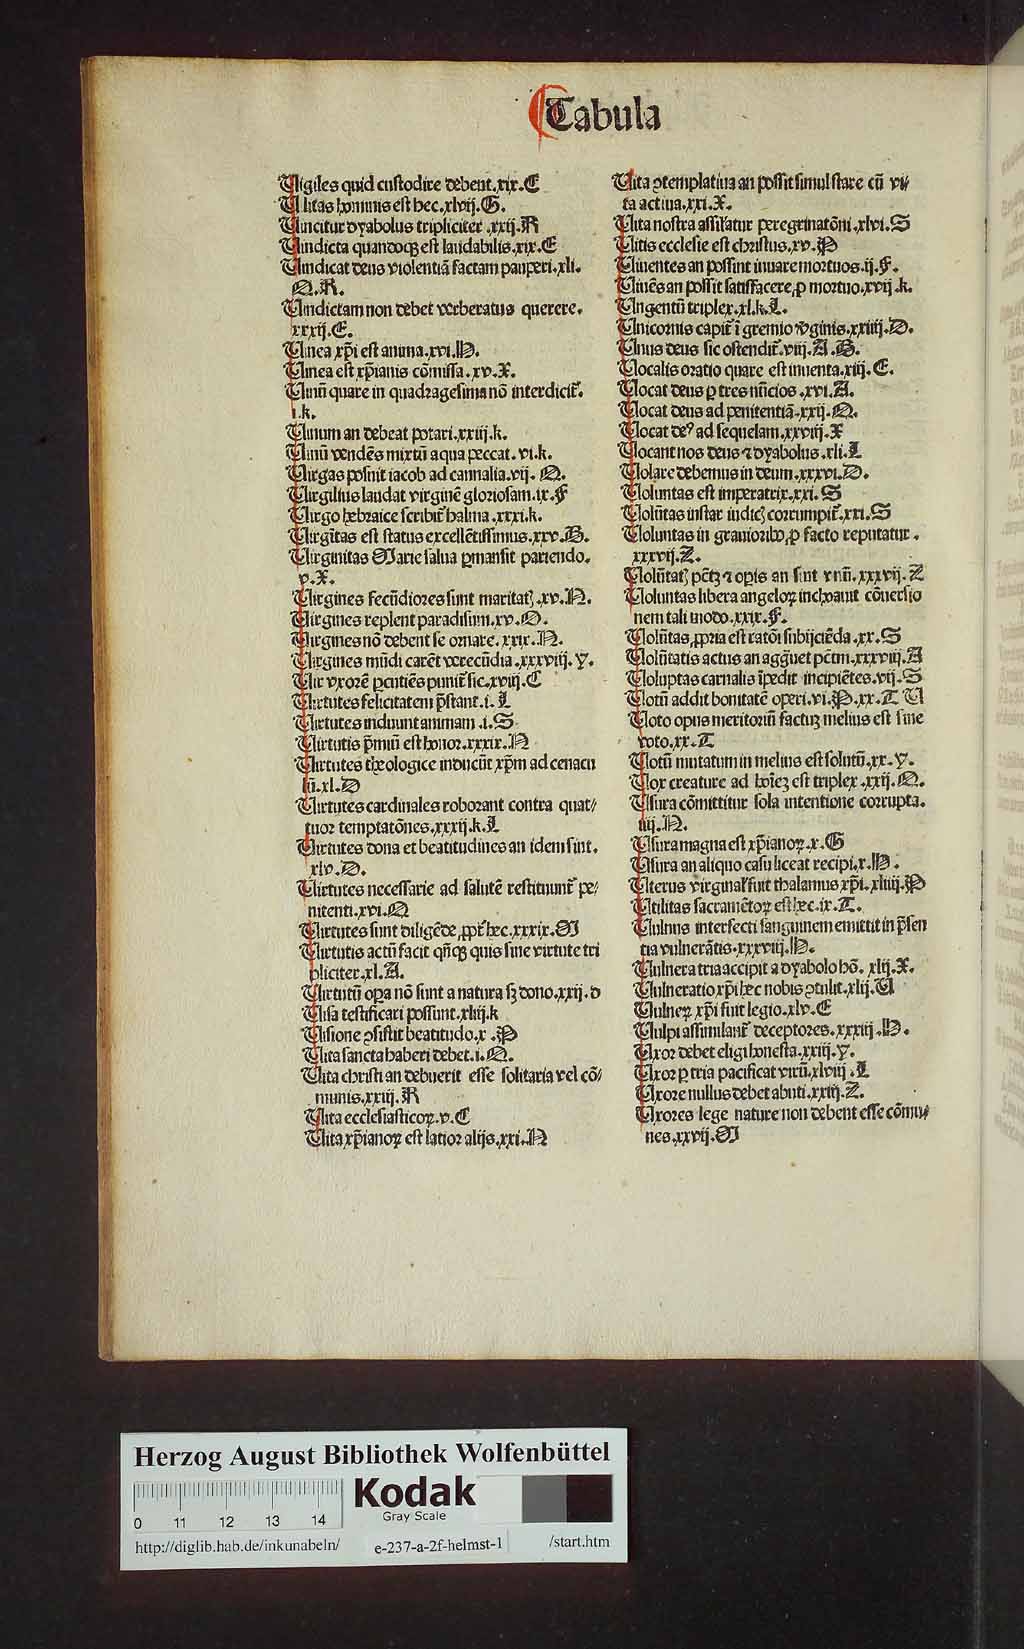 Tabula
Vigiles quid custodire debent.xix.E
Vilitas hominis est hec.xlvij.G.
Vincitur dyabolus tripliciter.xxij.R
Vindicta quandoqȝ est laudabilis.xix.E
Vindicat deus violentiā factam pauperi.xli.
Q.R.
Vindictam non debet verberatus querere.
xxxij.E.
Vinea xp̄i est anima.xvi.H.
Vinea est xp̄ianis cōmissa.xv.X.
Vinū quare in quadragesima nō interdicit᷑.
i.k.
Vinum an debeat potari.xxiij.k.
Vinū vendēs mixtū aqua peccat.vi.k.
Virgas posuit iacob ad cannalia.vij.Q.
Virgilius laudat virginē gloriosam.ix.F
Virgo hebraice scribit᷑ halma.xxxi.k.
Virgītas est status excellētissimus.xxv.B.
Virginitas Marie salua ꝑmansit pariendo.
v.X.
Virgines fecūdiores sunt maritatꝭ.xv.N.
Virgines replent paradisum.xv.O.
Virgines nō debent se ornare.xxix.N.
Virgines mūdi carēt verecūdia.xxxviij.Y.
Vir vxorē ꝑcutiēs punit᷑ sic.xviij.C
Virtutes felicitatem p̄stant.i.L
Virtutes induunt animam.i.S
Virtutis p̄miū est honor.xxxix.N
Virtutes theologice inducūt xp̄m ad cenacu
lū.xl.D
Virtutes cardinales roborant contra quat/
tuor temptatōnes.xxxij.k.L
Virtutes dona et beatitudines an idem sint.
xlv.D.
Virtutes necessarie ad salutē restituunt᷑ pe/
nitenti.xvi.Q
Virtutes sunt diligēde ꝓpt᷑ hec.xxxix.M
Virtutis actū facit qn̄qȝ quis sine virtute tri
pliciter.xl.A.
Virtutū oꝑa nō sunt a natura sȝ dono.xxij.d
Visa testificari possunt.xliij.k
Visione ꝯsistit beatitudo.x.P
Vita sancta haberi debet.i.Q.
Vita christi an debuerit esse solitaria vel cō/
munis.xxiij.R
Vita ecclesiasticoꝝ.v.C
Vita xp̄ianoꝝ est latior alijs.xxi.N
Vita ꝯtemplatiua an possit simul stare cū vi/
ta actiua.xxi.X.
Vita nostra assil᷑atur peregrinatōni.xlvi.S
Vitis ecclesie est christus.xv.P
Viuentes an possint iuuare mortuos.ij.F.
Viuēs an possit satisfacere ꝓ mortuo.xvij.k.
Vngentū triplex.xl.k.L.
Vnicornis capit᷑ ī gremio v̓ginis.xxiiij.D.
Vnus deus sic ostendit᷑.viij.A.B.
Vocalis oratio quare est inuenta.xiij.E.
Vocat deus ꝑ tres nūcios.xvi.A.
Vocat deus ad penitentiā.xxij.Q.
Vocat deꝰ ad sequelam.xxviij.X
Vocant nos deus ⁊ dyabolus.xli.L
Volare debemus in deum.xxxvi.D.
Voluntas est imperatrix.xxi.S
Volūtas instar iudicꝭ corrumpit᷑.xxi.S
Voluntas in grauioribꝰ ꝓ facto reputatur.
xxxvij.Z.
Volūtatꝭ pc̄tȝ ⁊ oꝑis an sint vnū.xxxvij.Z
Voluntas libera angeloꝝ inchoauit cōuersio
nem tali modo.xxix.F.
Volūtas ꝓpria est ratōi subijciēda.xx.S
Volūtatis actus an aggͣuet pc̄tm.xxxviij.A
Voluptas carnalis īpedit incipiētes.vij.S
Votū addit bonitatē operi.vi.P.xx.T V
Voto opus meritoriū factuȝ melius est sine
voto.xx.T
Votū mutatum in melius est solutū.xx.Y.
Vox creature ad hoīeȝ est triplex.xxij.Q.
Vsura cōmittitur sola intentione corrupta.
iiij.N.
Vsura magna est xp̄ianoꝝ.x.G
Vsura an aliquo casu liceat recipi.x.H.
Vterus virginal᷑ fuit thalamus xp̄i.xliiij.P
Vtilitas sacramētoꝝ est hec.ix.T.
Vulnus interfecti sanguinem emittit in p̄sen
tia vulnerātis.xxxviij.H.
Vulnera tria accipit a dyabolo hō.xlij.X.
Vulneratio xp̄i hec nobis ꝯtulit.xlij.V
Vulneꝝ xp̄i fuit legio.xlv.E
Vulpi assimilant᷑ deceptores.xxxiij.H.
Vxor debet eligi honesta.xxiij.Y.
Vxor ꝑ tria pacificat virū.xlviij.L
Vxore nullus debet abuti.xxiij.Z.
Vxores lege nature non debent esse cōmu/
nes.xxvij.M
Herzog August Bibliothek Wolfenbüttel
Kodak
Gray Scale
0 11 12 13 14
http://diglib.hab.de/inkunabeln/ e-237-a-2f-helmst-1 /start.htm